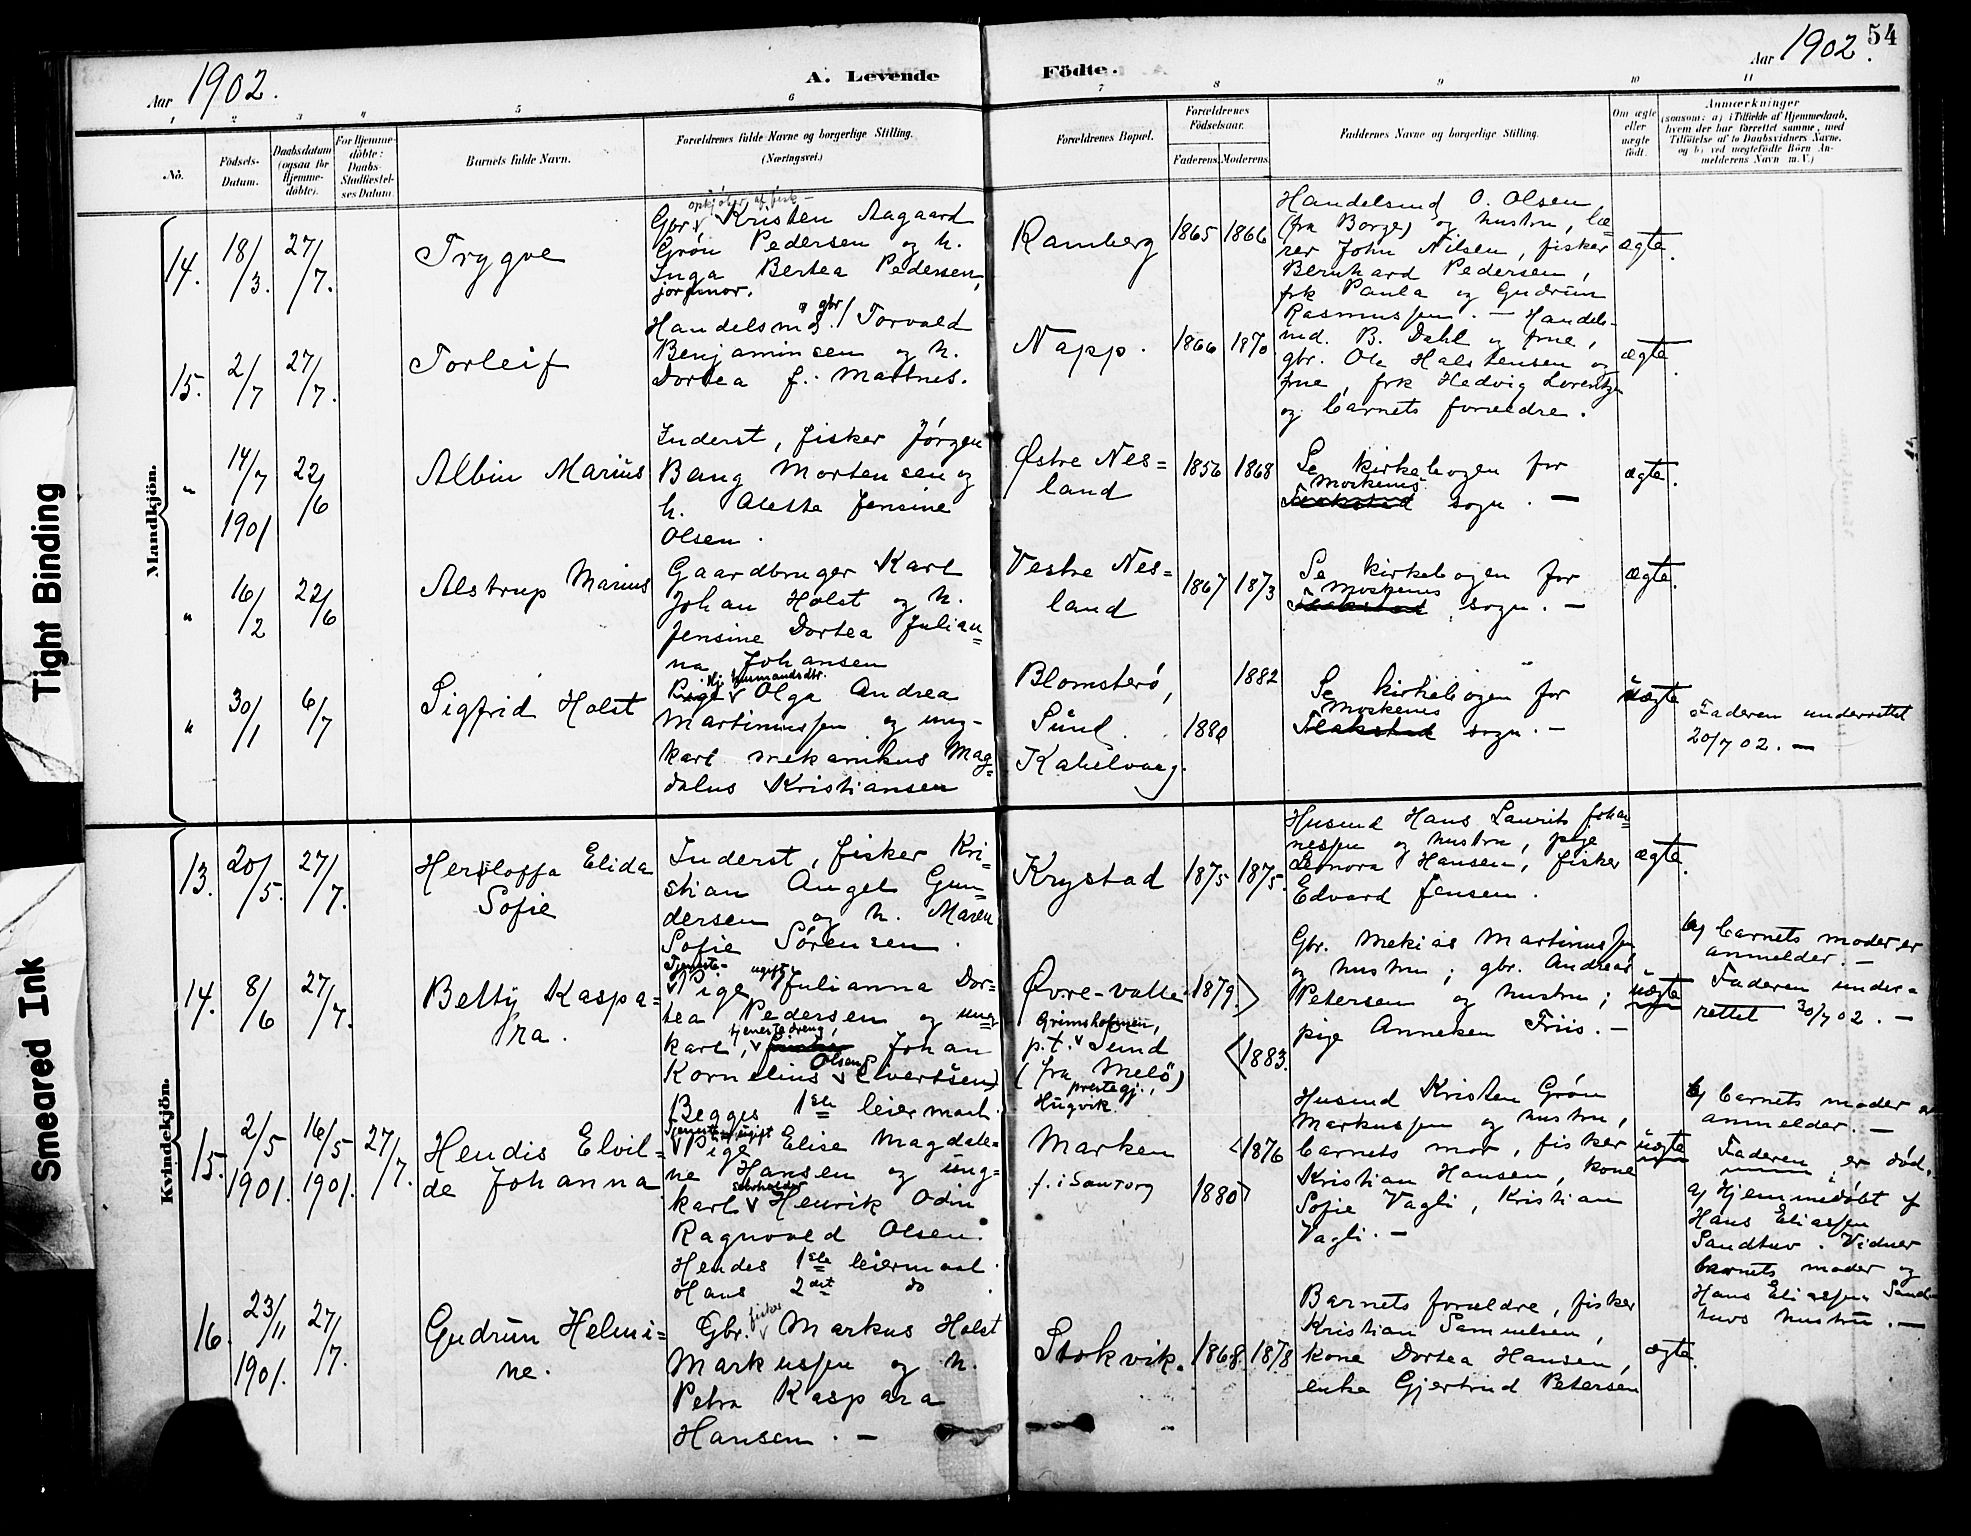 54
Aar 1902.
A. Levende Födte.
Aar 1902.
1 2 3 4 5 6 7 8 9 10 11
No.
Födsels-Datum.
Daabsdatum (ogsaa for Hjemme-döbte).
For Hjemme-döbte: Daabs-Stadfæstel-ses Datum.
Barnets fulde Navn.
Forældrenes fulde Navne og borgerlige Stilling.
(Næringsvei.)
Forældrenes Bopæl.
Forældrenes Födselsaar.
Faderens. Moderens.
Faddernes Navne og borgerlige Stilling.
Om ægte eller uægte födt.
Anmærkninger
(saasom: a) i Tilfælde af Hjemmedaab,
hvem der har forrettet samme, med
Tilföielse af to Daabsvidners Navne,
og b) ved uægtefödte Börn An-
melderens Navn m. V.)
Mandkjön.
14. 18/3. 27/7.
Trygve
opkjøber af fisk
Gbr, Kristen Aagaard
Grön Pedersen og h.
Inga Bertea Pedersen,
jormor.
Ramberg
1865 1866
Handelsmd O. Olsen
(fra Borge) og hustru, læ-
rer John Nilsen, fisker
Bernhard Pedersen,
frk Paula og Gudrun
Rasmussen. —
ægte.
15. 2/7 27/7.
Torleif
Handelsm. og gbr Torvald
Benjaminsen og h.
Dortea f. Martnes.
Napp.
1866 1870
Handels-
md. B. Dahl og frue,
gbr. Ole Halstensen og
frue, frk Hedvig Lorentzen
og barnets forældre.
ægte.
" 14/7 1901 22/6
Albin Marius
Inderst, fisker Jörgen
Bang Mortensen og
h. Alette Jensine
Olsen.
Østre Nes=
land
1856 1868
Se kirkebogen for
Moskenes
Flakstad sogn. —
ægte.
" 16/2 22/6
Alstrup Marius
Gaardbruger Karl
Johan Holst og h.
Jensine Dortea Julian=
na Johansen
Vestre Nes=
land
1867 1873
Se kirkebogen for
Moskenes
Flakstad sogn. —
ægte.
" 30/1 6/7
Sigfrid Holst
Pige Olga Andrea
Martinussen og ung-
karl mekanikus Mag=
dalus Kristiansen
Blomsterö,
Sund.
Kabelvaag.
1880 1882
Se kirkebogen for
Moskenes
Flakstad sogn. —
uægte
Faderen underrettet
20/7 02. —
Kvindekjön.
13. 20/5. 27/7.
Hersloffa Elida
Sofie
Inderst, fisker Kri-
stian Angel Gun=
dersen og h. Maren
Sofie Sörensen.
Krystad
1875 1875.
Husmd Hans Laurits Johan=
nessen og hustru, pige
Leonora Hansen, fisker
Edvard Jensen.
ægte.
14. 8/6 27/7.
Betty Kaspa=
ra.
Tjeneste- ugift
Pige Julianna Dor=
tea Pedersen og ung=
tjenestedreng,
karl, fisker Johan
Olsen
Kornelius (Sivertsen)
Begges 1ste leiermaal.
Øvre-valle
Grimsholmen,
p.t. Sund
(fra Melö)
prestegj.,
Hugvik.
1879. 1883.
Gbr. Mekias Martinussen
og hustru; gbr. Andreas
Petersen og hustru;
pige Anneken Friis. —
uægte
b) barnets moder er
anmelder. —
Faderen under-
rettet 30/7 02. —
15. 2/5 1901. 16/5 1901. 27/7.
Hendis Elvil=
de Johanna
Tjeneste ugift
Pige Elise Magdale=
ne Hansen og ung=
karl Henrik Odin
Ragnvald Olsen.
Hendes 1ste leiermaal.
Hans 2det do.
Marken
f. i Saurorg
1876 1880
Husmd Kristen Grön
Markussen og hustru,
barnets mor, fisker
Kristian Hansen, kone
Sofie Vagli, Kristian
Vagli. —
uægte
b) barnets moder er
anmelder. —
Faderen er död.
a) Hjemmedöbt af
Hans Eliassen
Sandhuv. Vidner
barnets moder og
Hans Eliassen Sand-
huvs hustru. —
16. 23/11 1901. 27/7.
Gudrun Helmi=
ne.
fisker
Gbr. Markus Holst
Markussen og h.
Petra Kaspara
Hansen. —
Stokvik.
1868. 1878
Barnets forældre, fisker
Kristian Samuelsen,
kone Dortea Hansen,
enke Gjertrud Petersen
ægte.
Tight Binding
Smeared Ink